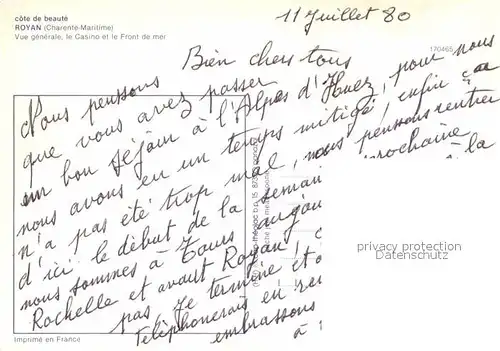 côte de beauté
ROYAN (Charente-Maritime)
Vue générale, le Casino et le Front de mer
11 Juillet 80
170465
Bien chers tous
Nous pensons
que vous avez passer
un bon séjour à l'Alpes d'Huez, pour nous
nous avons eu un temps mitigé, enfin ça
n'a pas été trop mal, nous pensons rentrer
d'ici le début de la semaine prochaine
nous sommes à Tours
à la
Rochelle et avant Royan,
pas. Je termine et
Téléphonerais en
embrassons
à
privacy protection
Datenschutz
Imprimé en France